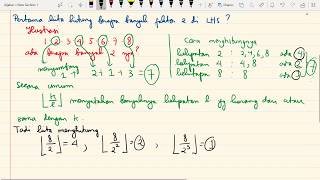 Pertama kita hitung berapa banyak faktor 2 di LHS ?
Ilustrasi
1 2 3 4 5 6 7 8
ada berapa banyak 2 nya ?
menyumbang
1 + 2 + 1 + 3 = 7
Cara menghitungnya
kelipatan 2 : 2, 4, 6, 8 ada 4
kelipatan 4 : 4, 8 ada 2
kelipatan 8 : 8 ada 1
7
Secara umum
⌊k/l⌋ menyatakan banyaknya kelipatan l yg kurang dari atau
sama dengan k.
Tadi kita menghitung
⌊8/2⌋ = 4 , ⌊8/2²⌋ = 2 , ⌊8/2³⌋ = 1